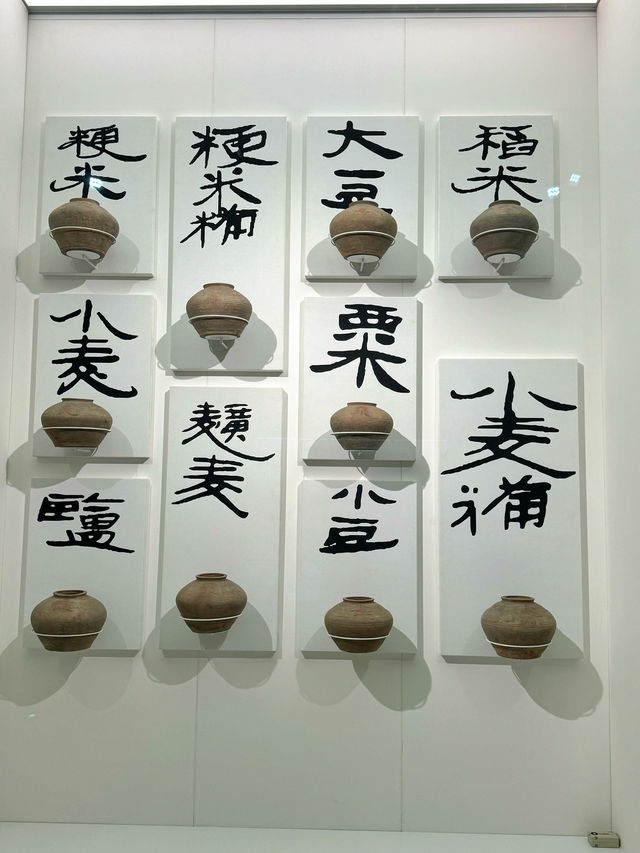 粳
米
粳
米
糒
大
豆
稻
米
小
麦
粟
小
麦
糒
䵃
麦
鹽
小
豆